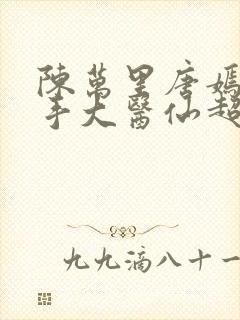 陳萬里唐嫣
手大醫仙超
九九滴八十一